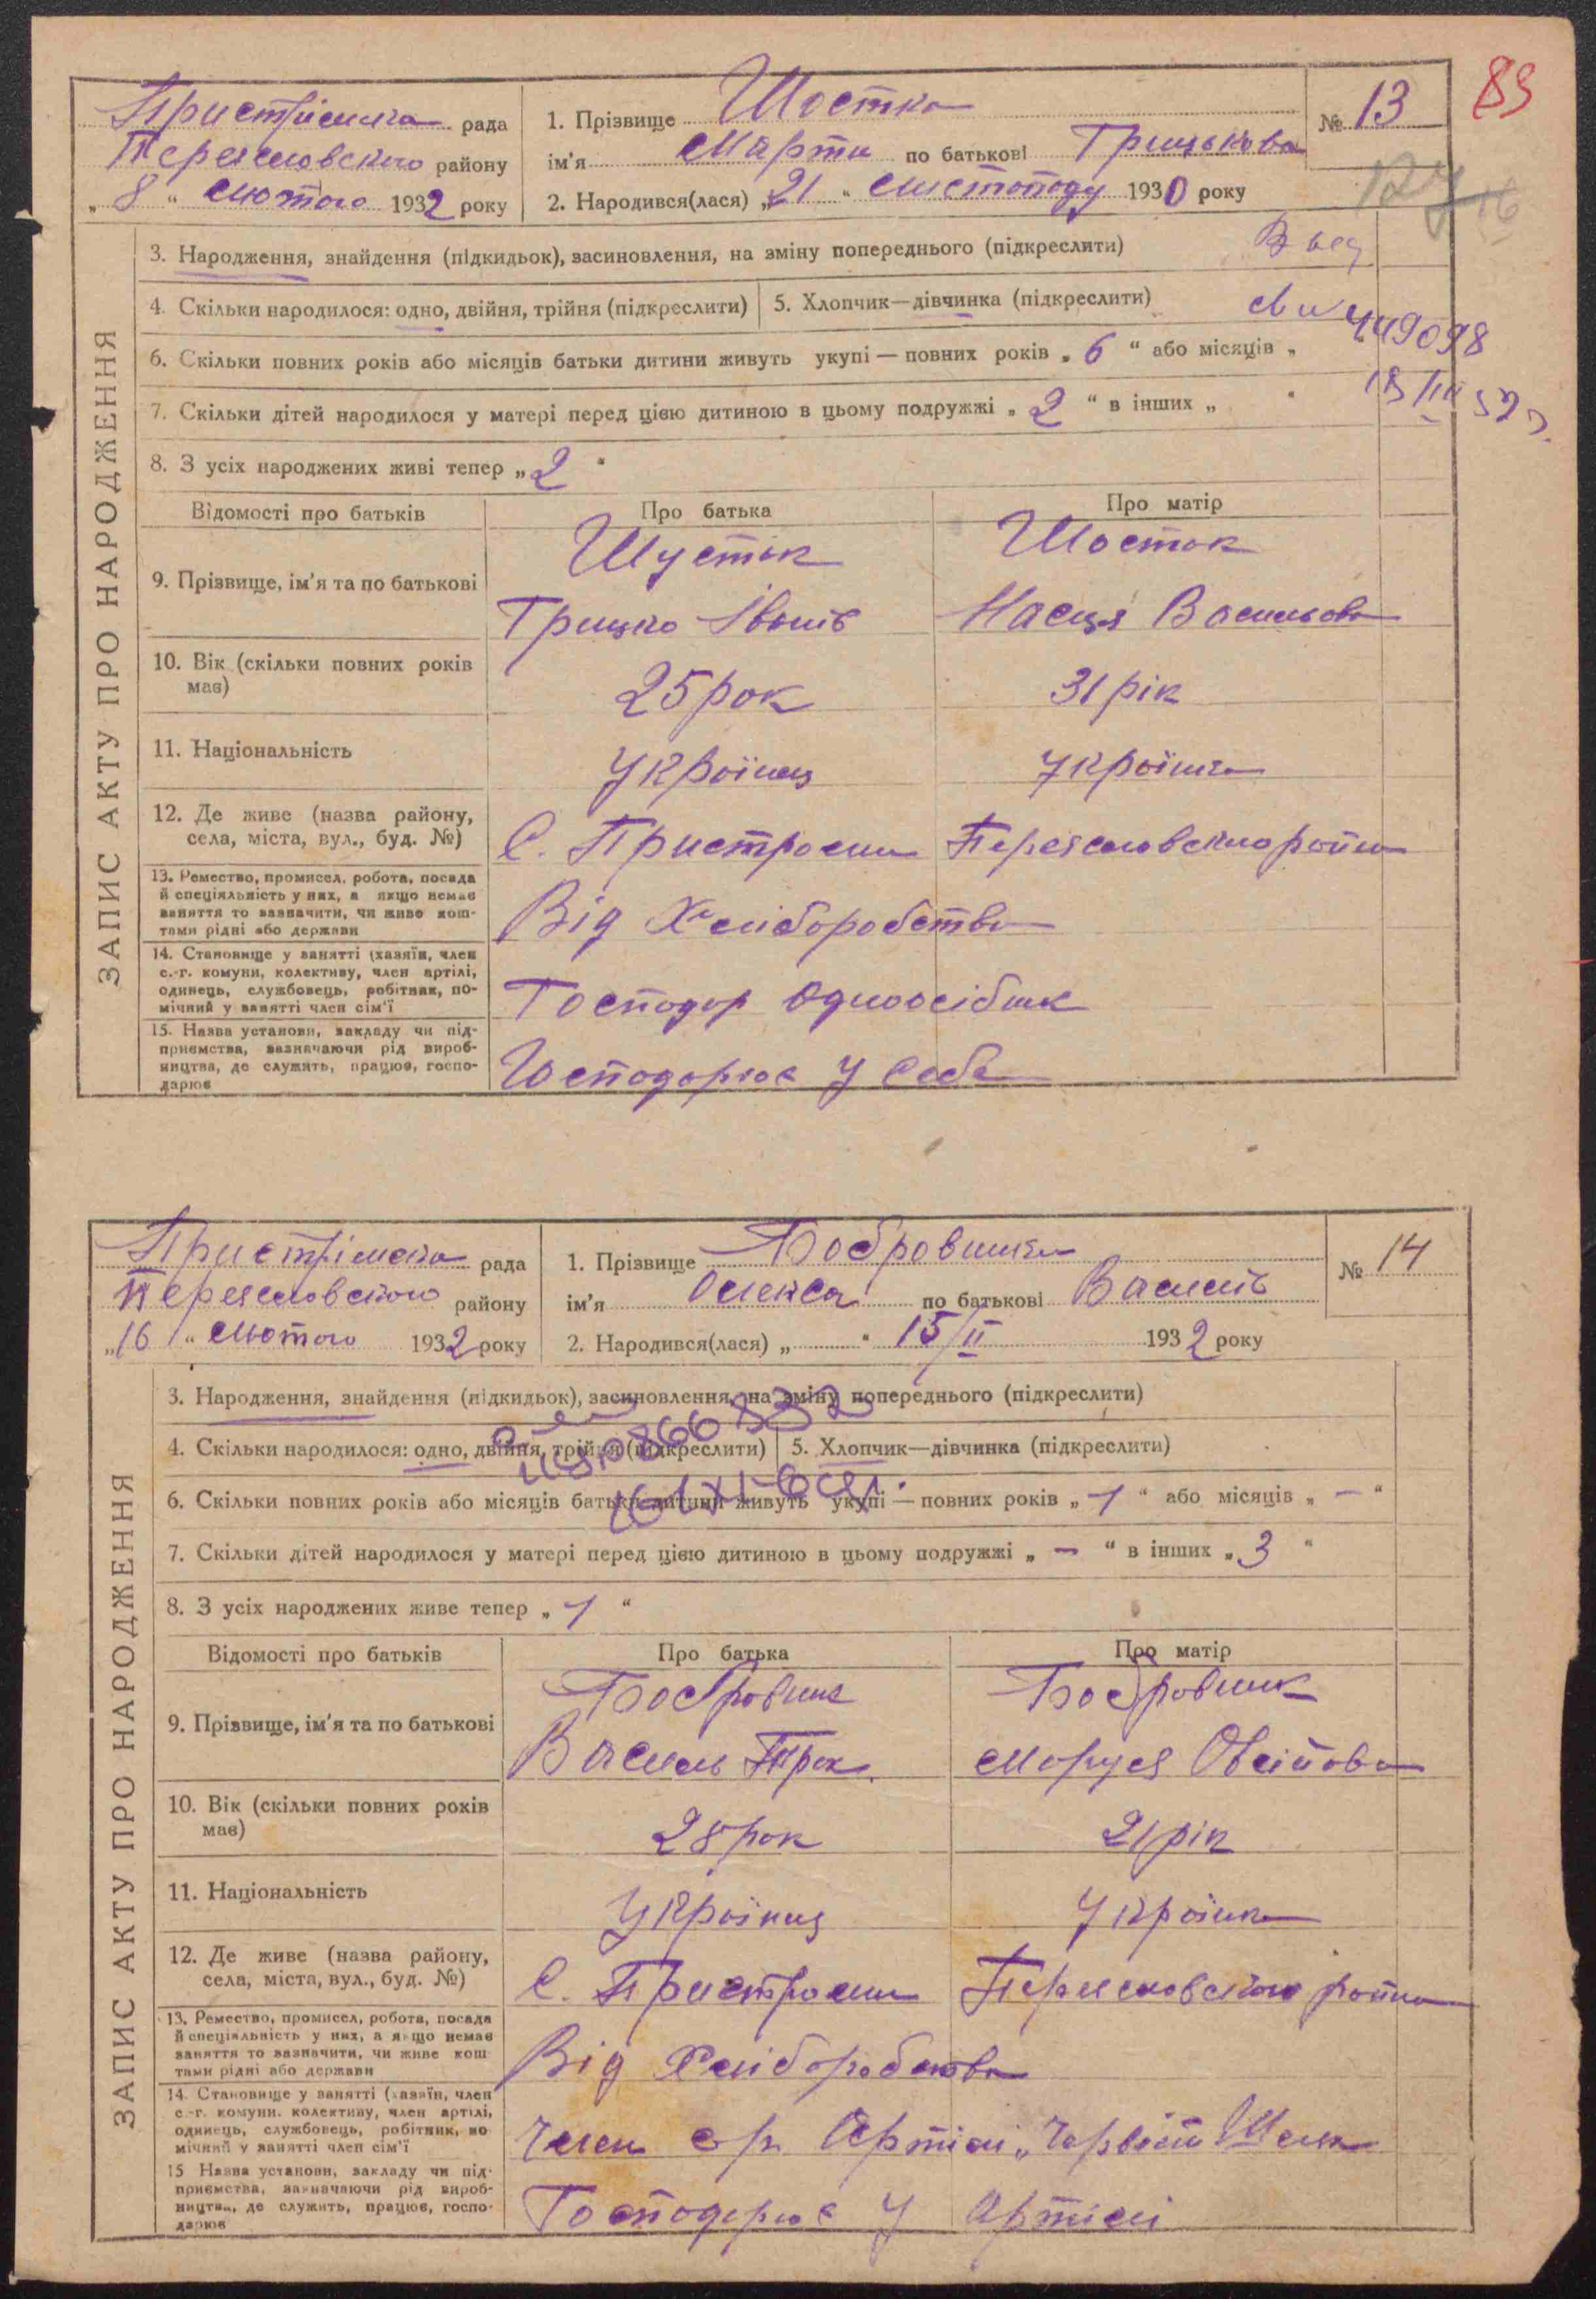 83
Пристрімська рада
Переяславського району
„8“ Лютого 1932 року
1. Прізвище Шостка
ім'я Марта по батькові Грицькова
2. Народився(лася) „21“ Листопаду 1930 року
№ 13
3. Народження, знайдення (підкидьок), засиновлення, на зміну попереднього (підкреслити)
4. Скільки народилося: одно, двійня, трійня (підкреслити)
5. Хлопчик—дівчинка (підкреслити)
6. Скільки повних років або місяців батьки дитини живуть укупі — повних років „6“ або місяців „
7. Скільки дітей народилося у матері перед цією дитиною в цьому подружжі „2“ в інших „ “
8. З усіх народжених живі тепер „2“
ЗАПИС АКТУ ПРО НАРОДЖЕННЯ
Відомості про батьків
Про батька
Про матір
9. Прізвище, ім'я та по батькові
Шусток
Грицко Іванів
Шосток
Насця Васильова
10. Вік (скільки повних років має)
25 рок
31 рік
11. Національність
Українец
Українка
12. Де живе (назва району, села, міста, вул., буд. №)
С. Пристроми Переяславського району
13. Ремество, промисел, робота, посада й спеціяльність у них, а якщо немає заняття то зазначити, чи живе коштами рідні або держави
Від Хліборобства
14. Становище у занятті (хазяїн, член с.-г. комуни, колективу, член артілі, одинець, службовець, робітник, помічний у занятті член сім'ї
Господар Одноосібник
15. Назва установи, закладу чи підприємства, зазначаючи рід виробництва, де служить, працює, господарює
Господорює У Себе
Пристрімська рада
Переяславського району
„16“ Лютого 1932 року
1. Прізвище Бобровника
ім'я Олекса по батькові Василів
2. Народився(лася) „ “ 15/II 1932 року
№ 14
3. Народження, знайдення (підкидьок), засиновлення, на зміну попереднього (підкреслити)
4. Скільки народилося: одно, двійня, трійня (підкреслити)
5. Хлопчик—дівчинка (підкреслити)
6. Скільки повних років або місяців батьки дитини живуть укупі — повних років „1“ або місяців „—“
7. Скільки дітей народилося у матері перед цією дитиною в цьому подружжі „—“ в інших „3“
8. З усіх народжених живе тепер „1“
ЗАПИС АКТУ ПРО НАРОДЖЕННЯ
Відомості про батьків
Про батька
Про матір
9. Прізвище, ім'я та по батькові
Бобровник
Василь
Бобровник
Маруся Овсійова
10. Вік (скільки повних рохів має)
28 рок
21 рік
11. Національність
Українец
Українка
12. Де живе (назва району, села, міста, вул., буд. №)
С. Пристроми Переяславського району
13. Ремество, промисел, робота, посада й спеціяльність у них, а якщо немає заняття то зазначити, чи живе коштами рідні або держави
Від Хліборобства
14. Становище у занятті (хазяїн, член с.-г. комуни, колективу, член артілі, одинець, службовець, робітник, помічний у занятті член сім'ї
Член Артілі „Червоний Шлях
15 Назва установи, закладу чи підприємства, зазначаючи рід виробництва, де служить, працює, господарює
Господорює У Артілі